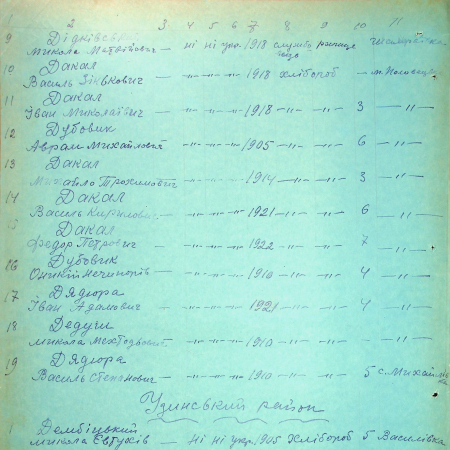 1 2 3 4 5 6 7 8 9 10 11
9 Дідківський
Микола Матвійович — ні ні укр. 1918
10 Дакал
Василь — „ — „ — „ 1918 Хлібороб —
11 Дакал
Іван Миколайович — „ — „ — „ 1918 — „ — „ — 3 — „ —
12 Дубовик
Аврам Михайлович — „ — „ — „ 1905 — „ — „ — 6 — „ —
13 Дакал
Михайло Трохимович — „ — „ — „ 1914 — „ — „ — 3 — „ —
14 Дакал
Василь Кирилович — „ — „ — „ 1921 — „ — „ — 6 — „ —
15 Дакал
Федор Петрович — „ — „ — „ 1922 — „ — „ — 7 — „ —
16 Дубовик
Оникій Нечипорів — „ — „ — „ 1910 — „ — „ — 4 — „ —
17 Дядюра
Іван Адамович — „ — „ — „ 1921 — „ — „ — 4 — „ —
18 Дедуш
Микола — „ — „ — „ 1910 — „ — „ — — „ —
19 Дядюра
Василь Степанович — „ — „ — „ 1910 — „ — „ — 5 с.
Узинський район
1 Дембіцький
Микола Євтухів — ні ні укр. 1905 Хлібороб 5 Василівка